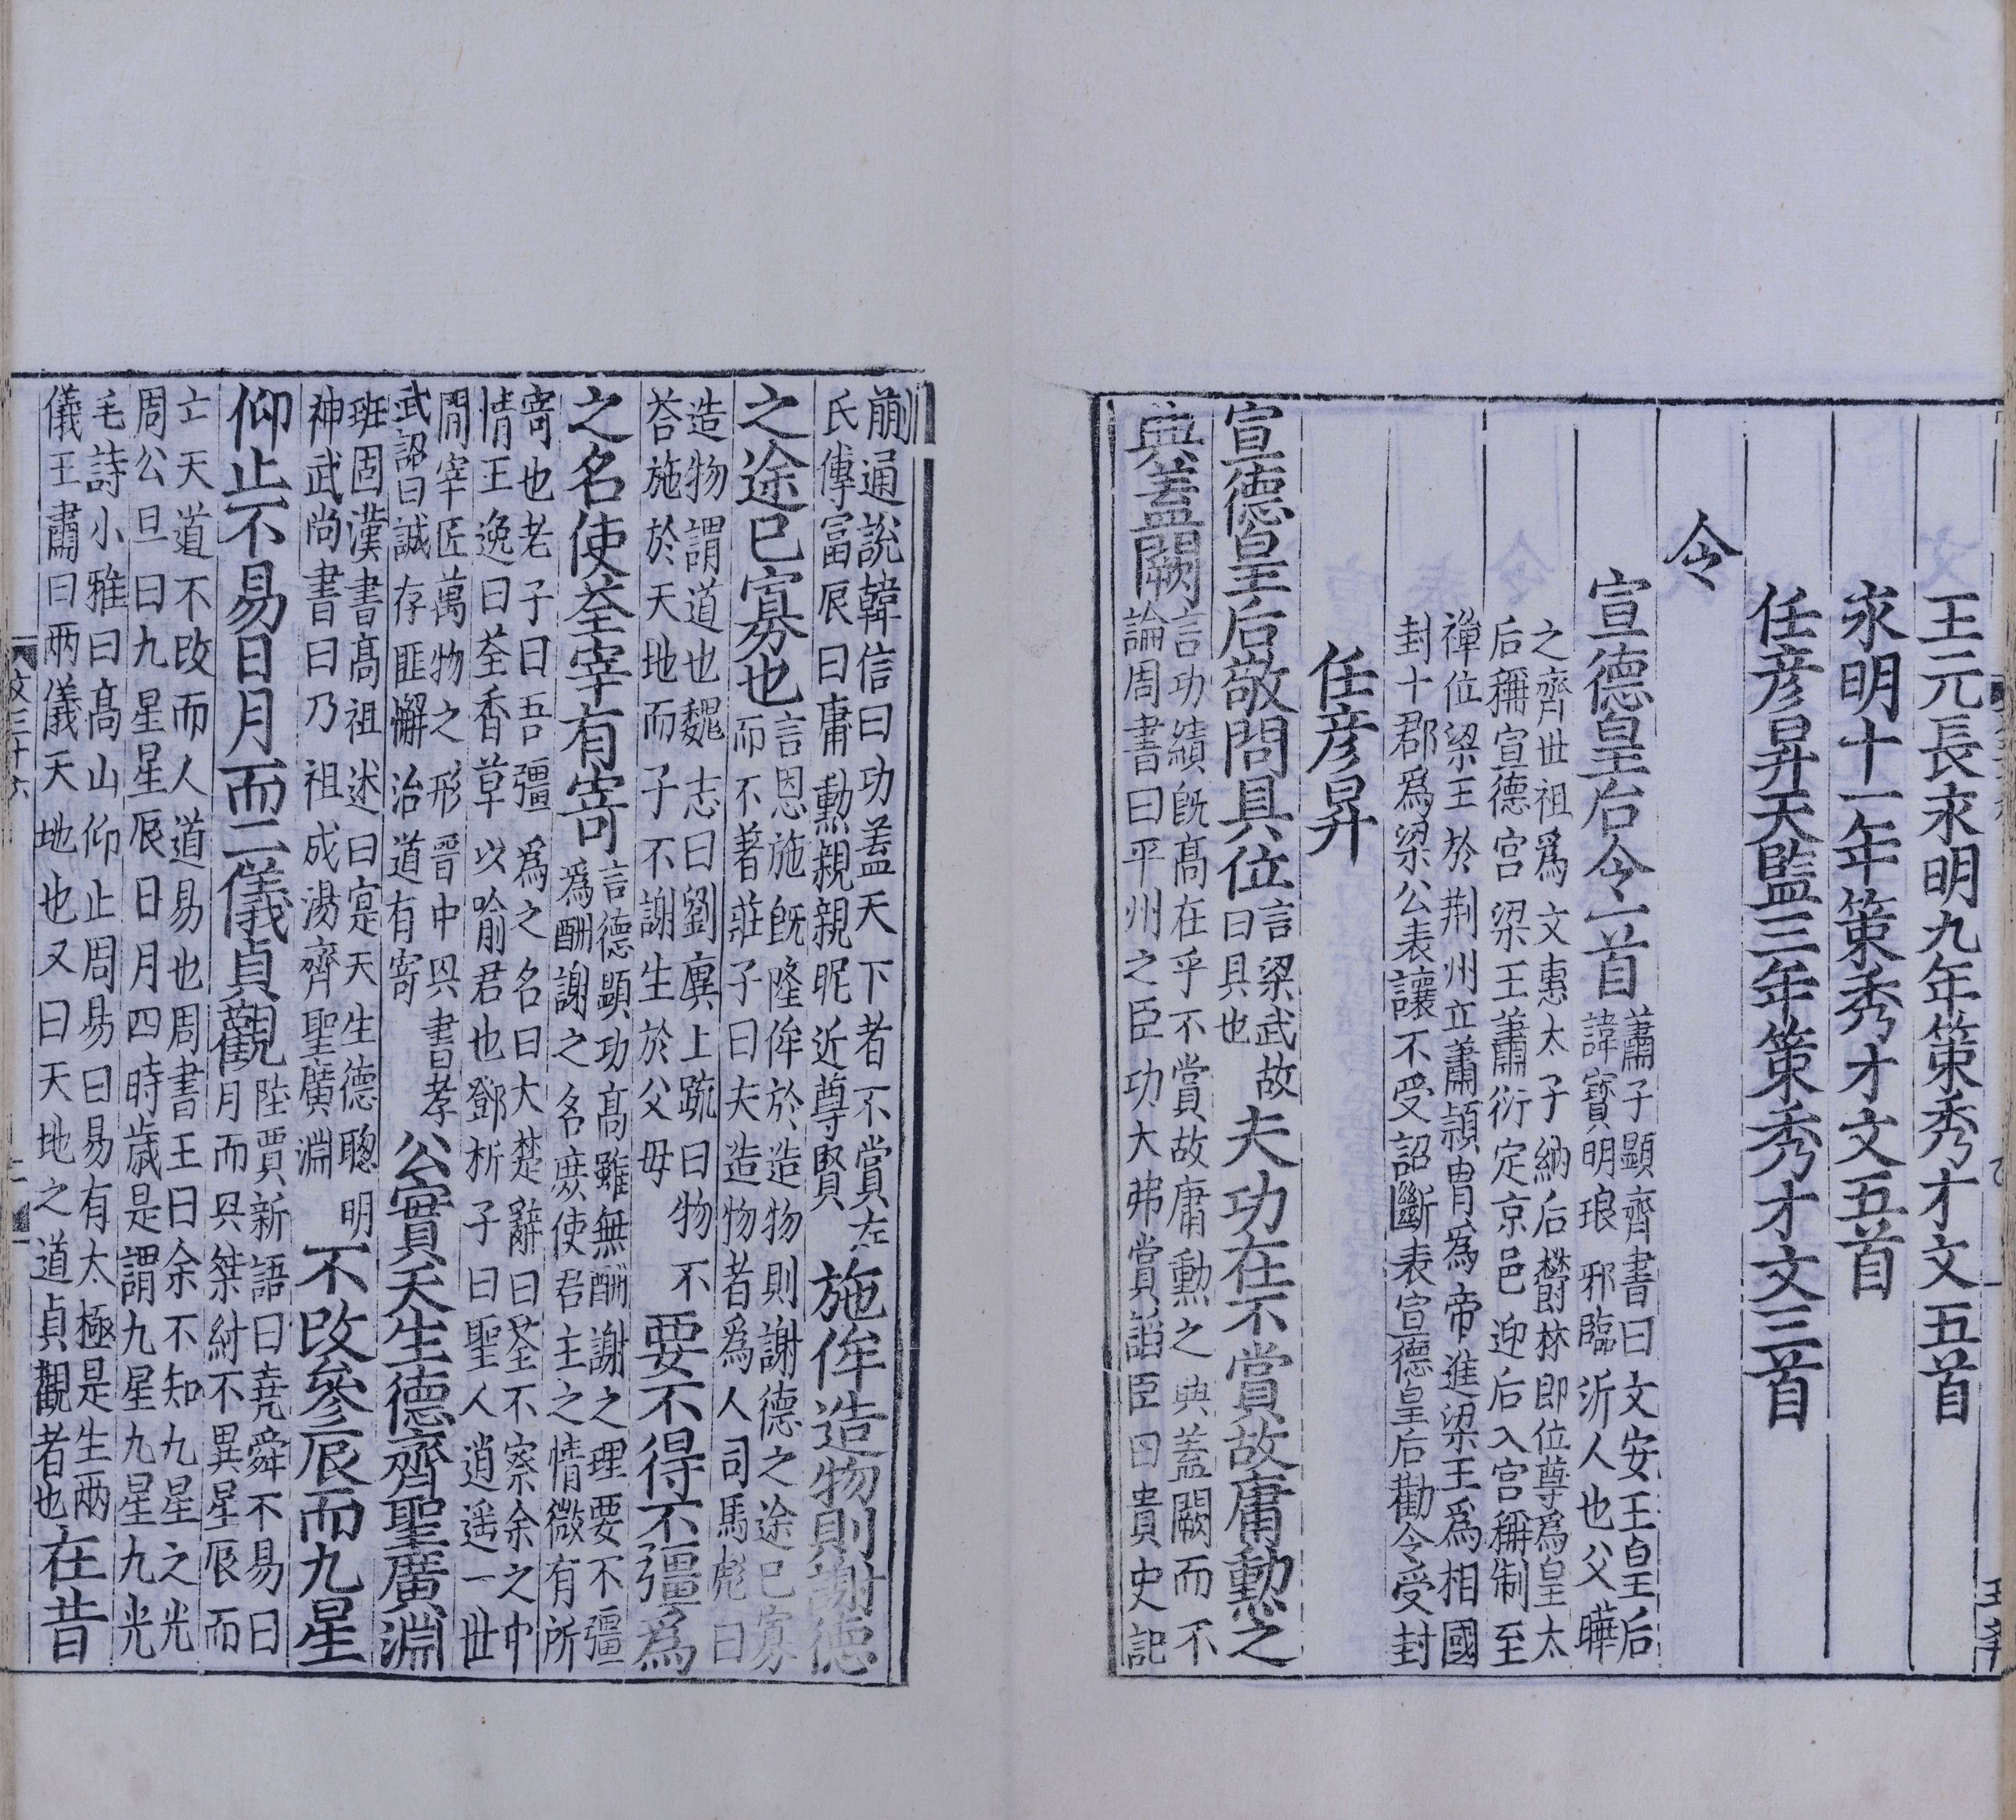 王元長永明九年策秀才文五首
永明十一年策秀才文五首
任彦昇天監三年策秀才文三首
令
宣德皇后令一首
蕭子顯齊書曰文安王皇后
諱寳明琅邪臨沂人也父曄
之齊世祖爲文惠太子納后欎林即位尊爲皇太
后稱宣德宫梁王蕭衍定京邑迎后入宫稱制至
禪位梁王於荆州立蕭穎胄爲帝進梁王爲相國
封十郡爲梁公表讓不受詔斷表宣德皇后勸令受封
任彦昇
宣德皇后敬問具位
言梁武故
曰具也
夫功在不賞故庸勲之
典蓋闕
言功績旣髙在乎不賞故庸勲之典蓋闕而不
論周書曰平州之臣功大弗賞謟臣曰貴史記
蒯通說韓信曰功蓋天下者不賞左
氏傳冨辰曰庸勲親親昵近尊賢
施侔造物則謝德
之途已寡也
言恩施旣隆侔於造物則謝德之途已寡
而不著莊子曰夫造物者爲人司馬彪曰
造物謂道也魏志曰劉廙上疏曰物不
荅施於天地而子不謝生於父母
要不得不彊爲
之名使荃宰有寄
言德顯功髙雖無酬謝之理要不彊
爲酬謝之名庶使君主之情微有所
寄也老子曰吾彊爲之名曰大楚辭曰荃不察余之中
情王逸曰荃香草以喻君也鄧析子曰聖人逍遥一世
閒宰匠萬物之形晉中興書孝
武詔曰誠存匪懈治道有寄
公實天生德齊聖廣淵
班固漢書髙祖述曰寔天生德聰明
神武尚書曰乃祖成湯齊聖廣淵
不改參辰而九星
仰止不易日月而二儀貞觀
陸賈新語曰堯舜不易日
月而興桀紂不異星辰而
亡天道不改而人道易也周書王曰余不知九星之光
周公旦曰九星星辰日月四時歳是謂九星九星九光
毛詩小雅曰髙山仰止周易曰易有太極是生兩
儀王肅曰兩儀天地也又曰天地之道貞觀者也
在昔
文三十六
二